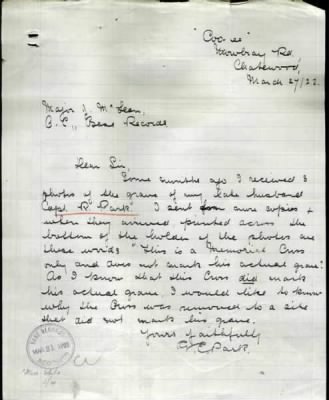 "Coo-ee"
Mowbray Rd
Chatswood
March 27/22.
Major J. McLean,
O. C., Base Records
Dear Sir,
Some months ago I received 3
photos of the grave of my late husband
Capt. R. Park. I sent for more copies &
when they arrived printed across the
bottom of the holder of the photos are
these words "This is a Memorial Cross
only and does not mark his actual grave."
As I know that this Cross did mark
his actual grave I would like to know
why the Cross was removed to a site
that did not mark his grave.
Yours faithfully
Park.
BASE RECORDS
MAR 31 1922